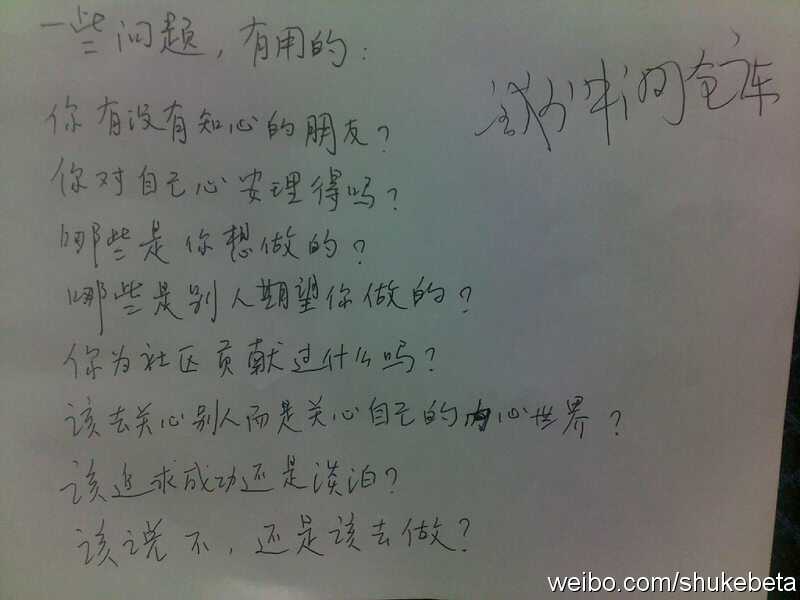 一些问题，有用的：
你有没有知心的朋友？
你对自己心安理得吗？
哪些是你想做的？
哪些是别人期望你做的？
你为社区贡献过什么吗？
该去关心别人而是关心自己的内心世界？
该追求成功还是淡泊？
该说不，还是该去做？
weibo.com/shukebeta